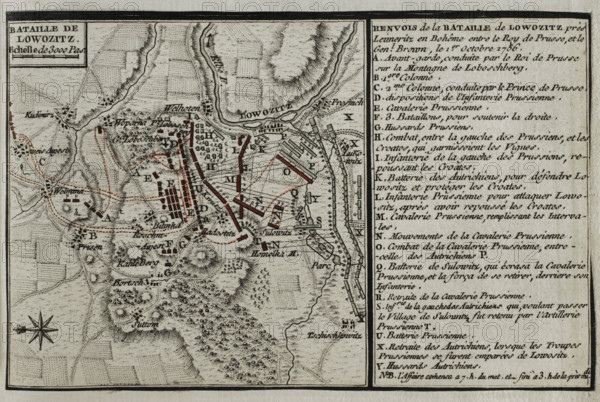 BATAILLE DE
LOWOZITZ.
Echelle de 3000 Pas
LOWOZITZ
Welhoten
Sulowitz
Parc
Kuhmir
Wchinna
Prisen
Bilinka
Homolka M.
Suttom
RENVOIS de la BATAILLE de LOWOZITZ près
Leimeritz en Bohême entre le Roy de Prusse, et le
Genl. Brown, le 1er Octobre 1756.
A. Avant-garde, conduite par le Roi de Prusse
sur la Montagne de Loboschberg.
B. 1ere Colonne.
C. 2me Colonne, conduite par le Prince de Prusse.
D. dispositions de l'Infanterie Prussienne.
E. Cavalerie Prussienne.
F. 3. Bataillons, pour soutenir la droite.
G. Hussards Prussiens.
H. Combat, entre la gauche des Prussiens, et les
Croates, qui garnissoient les Vignes.
I. Infanterie de la gauche des Prussiens, re-
poussant les Croates.
K. Batterie des Autrichiens, pour défendre Lo-
wositz et proteger les Croates.
L. Infanterie Prussienne pour attaquer Lowo-
sitz, après avoir repoussé les Croates.
M. Cavalerie Prussienne, remplissant les Interva-
les.
N. Mouvements de la Cavalerie Prussienne.
O. Combat de la Cavalerie Prussienne, entre-
celles des Autrichiens P.
Q. Batterie de Sulowitz, qui écrasa la Cavalerie
Prussienne, et la força de se retirer, derriere son
Infanterie.
R. Retraite de la Cavalerie Prussienne.
S. Infrie de la gauche des Autrichiens qui, voulant passer
le Village de Sulowitz, fut retenu par l'Artillerie
Prussienne T.
U. Batterie Prussienne.
X. Retraite des Autrichiens, lorsque les Troupes
Prussiennes se furent emparées de Lowositz.
Y. Hussards Autrichiens.
NB. L'Affaire comensa a 7. h. du mat. et finit a 3. h. de la près midi